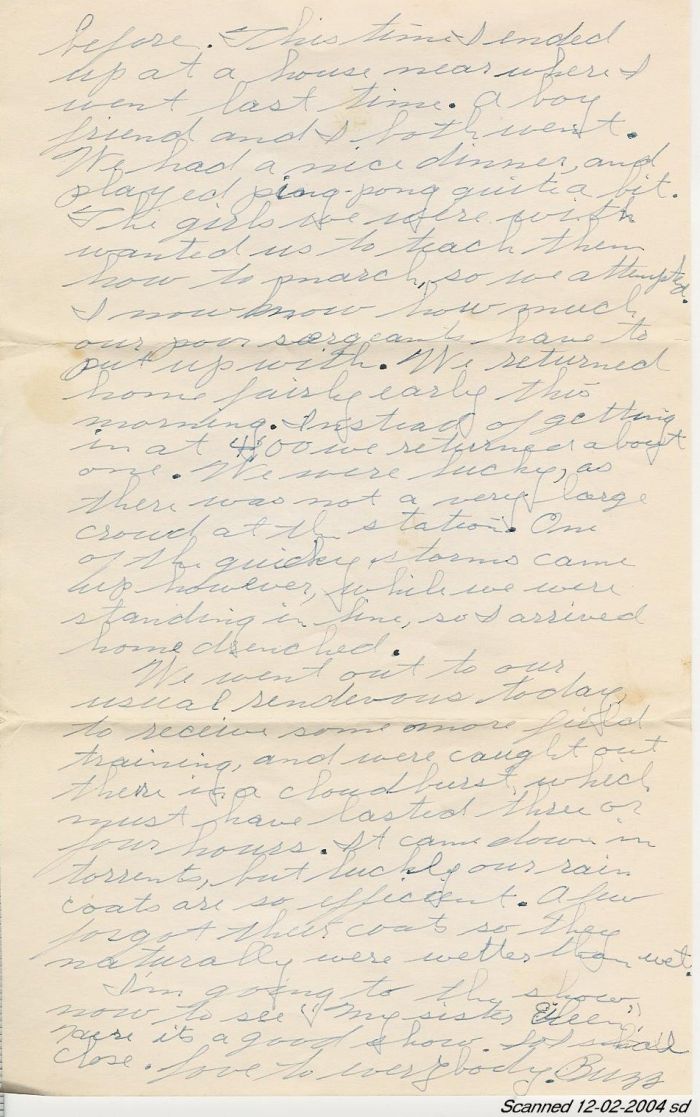 before. This time I ended
up at a house near where I
went last time. A boy
friend and I both went.
We had a nice dinner, and
played ping-pong quite a bit.
The girls we were with
wanted us to teach them
how to march, so we attempted.
I now know how much
our poor sergeants have to
put up with. We returned
home fairly early this
morning. Instead of getting
in at 4:00 we returned about
one. We were lucky, as
there was not a very large
crowd at the station. One
of the quicky storms came
up however, while we were
standing in line, so I arrived
home drenched.
We went out to our
usual rendevous today,
to receive some more field
training, and were caught out
there in a cloudburst, which
must have lasted three or
four hours. It came down in
torrents, but luckly our rain
coats are so efficient. A few
forgot their coats so they
naturally were wetter than wet.
I'm going to the show
now to see "My sister Eileen",
it's a good show. So I
close. Love to everybody. Buzz
Scanned 12-02-2004 sd